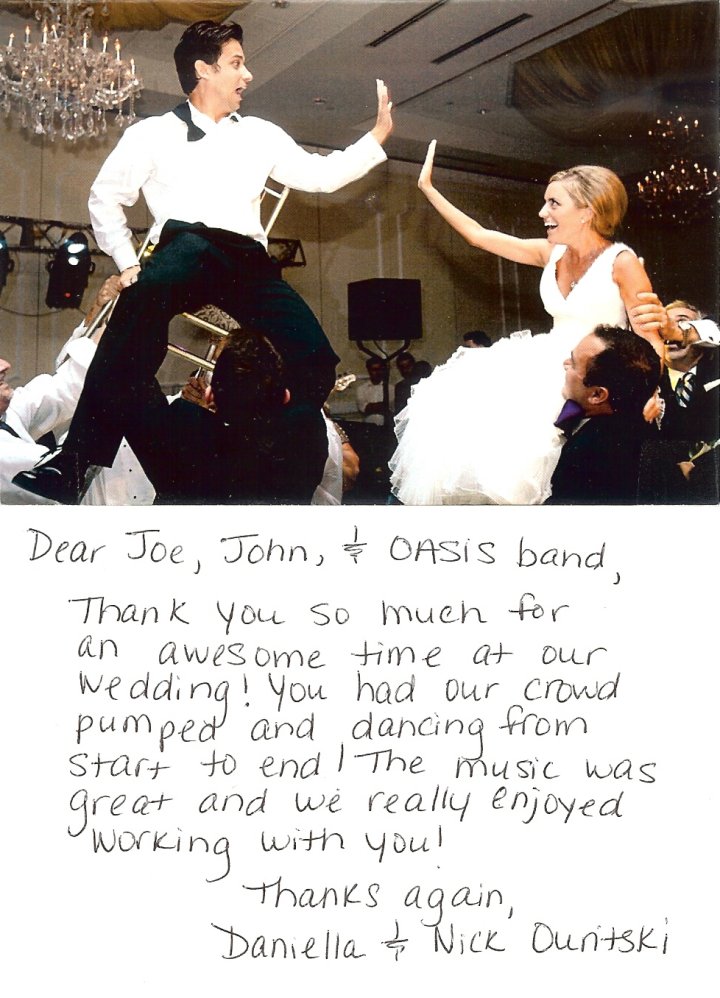 Dear Joe, John, & OASIS band,
Thank you so much for
an awesome time at our
wedding! You had our crowd
pumped and dancing from
start to end! The music was
great and we really enjoyed
working with you!
Thanks again,
Daniella & Nick